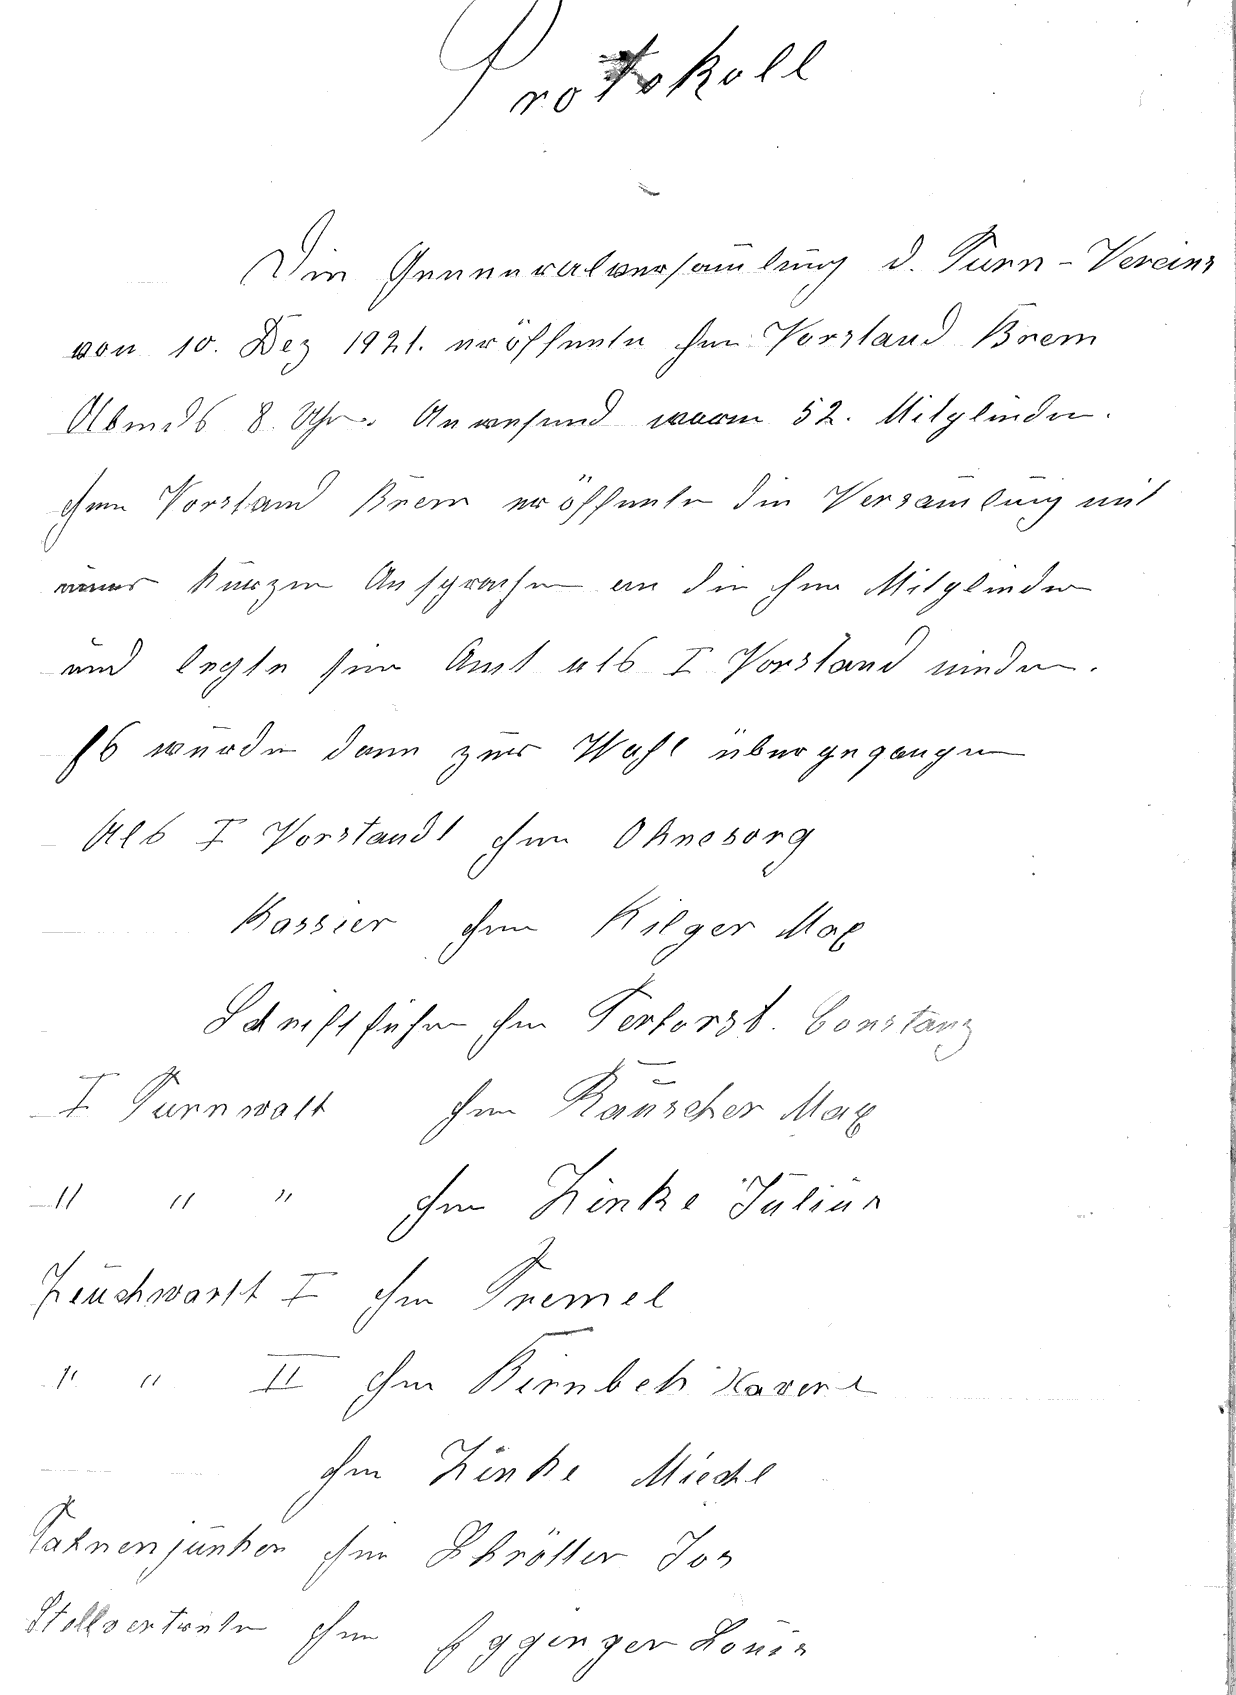 Protokoll
Die Genneralversam̄lung d. Turn-Vereins
von 10. Dez 1921. eröffnete Herr Vorstand Brem
Abends 8 Uhr. Anwesend waren 52. Mitglieder.
Herr Vorstand Brem eröffnete die Versam̄lung mit
einer kurzen Ansprache an die Herr Mitglieder
und legte sein Amt als I Vorstand nieder.
Es wurde dann zur Wahl übergegangen
Als I Vorstandt Herr Ohnesorg
Kassier Herr Kilger Max
Schriftführer Herr Constanz
I Turnwatt Herr Rauscher Max
" " " Herr Zinke Julius
Zeuchwartt I Herr Tremel
" " II Herr Birnbek Xaver
Herr Zinke Miechl
Fahnenjunker Herr Schrötter Jos
Stellvertreter Herr Egginger Louis